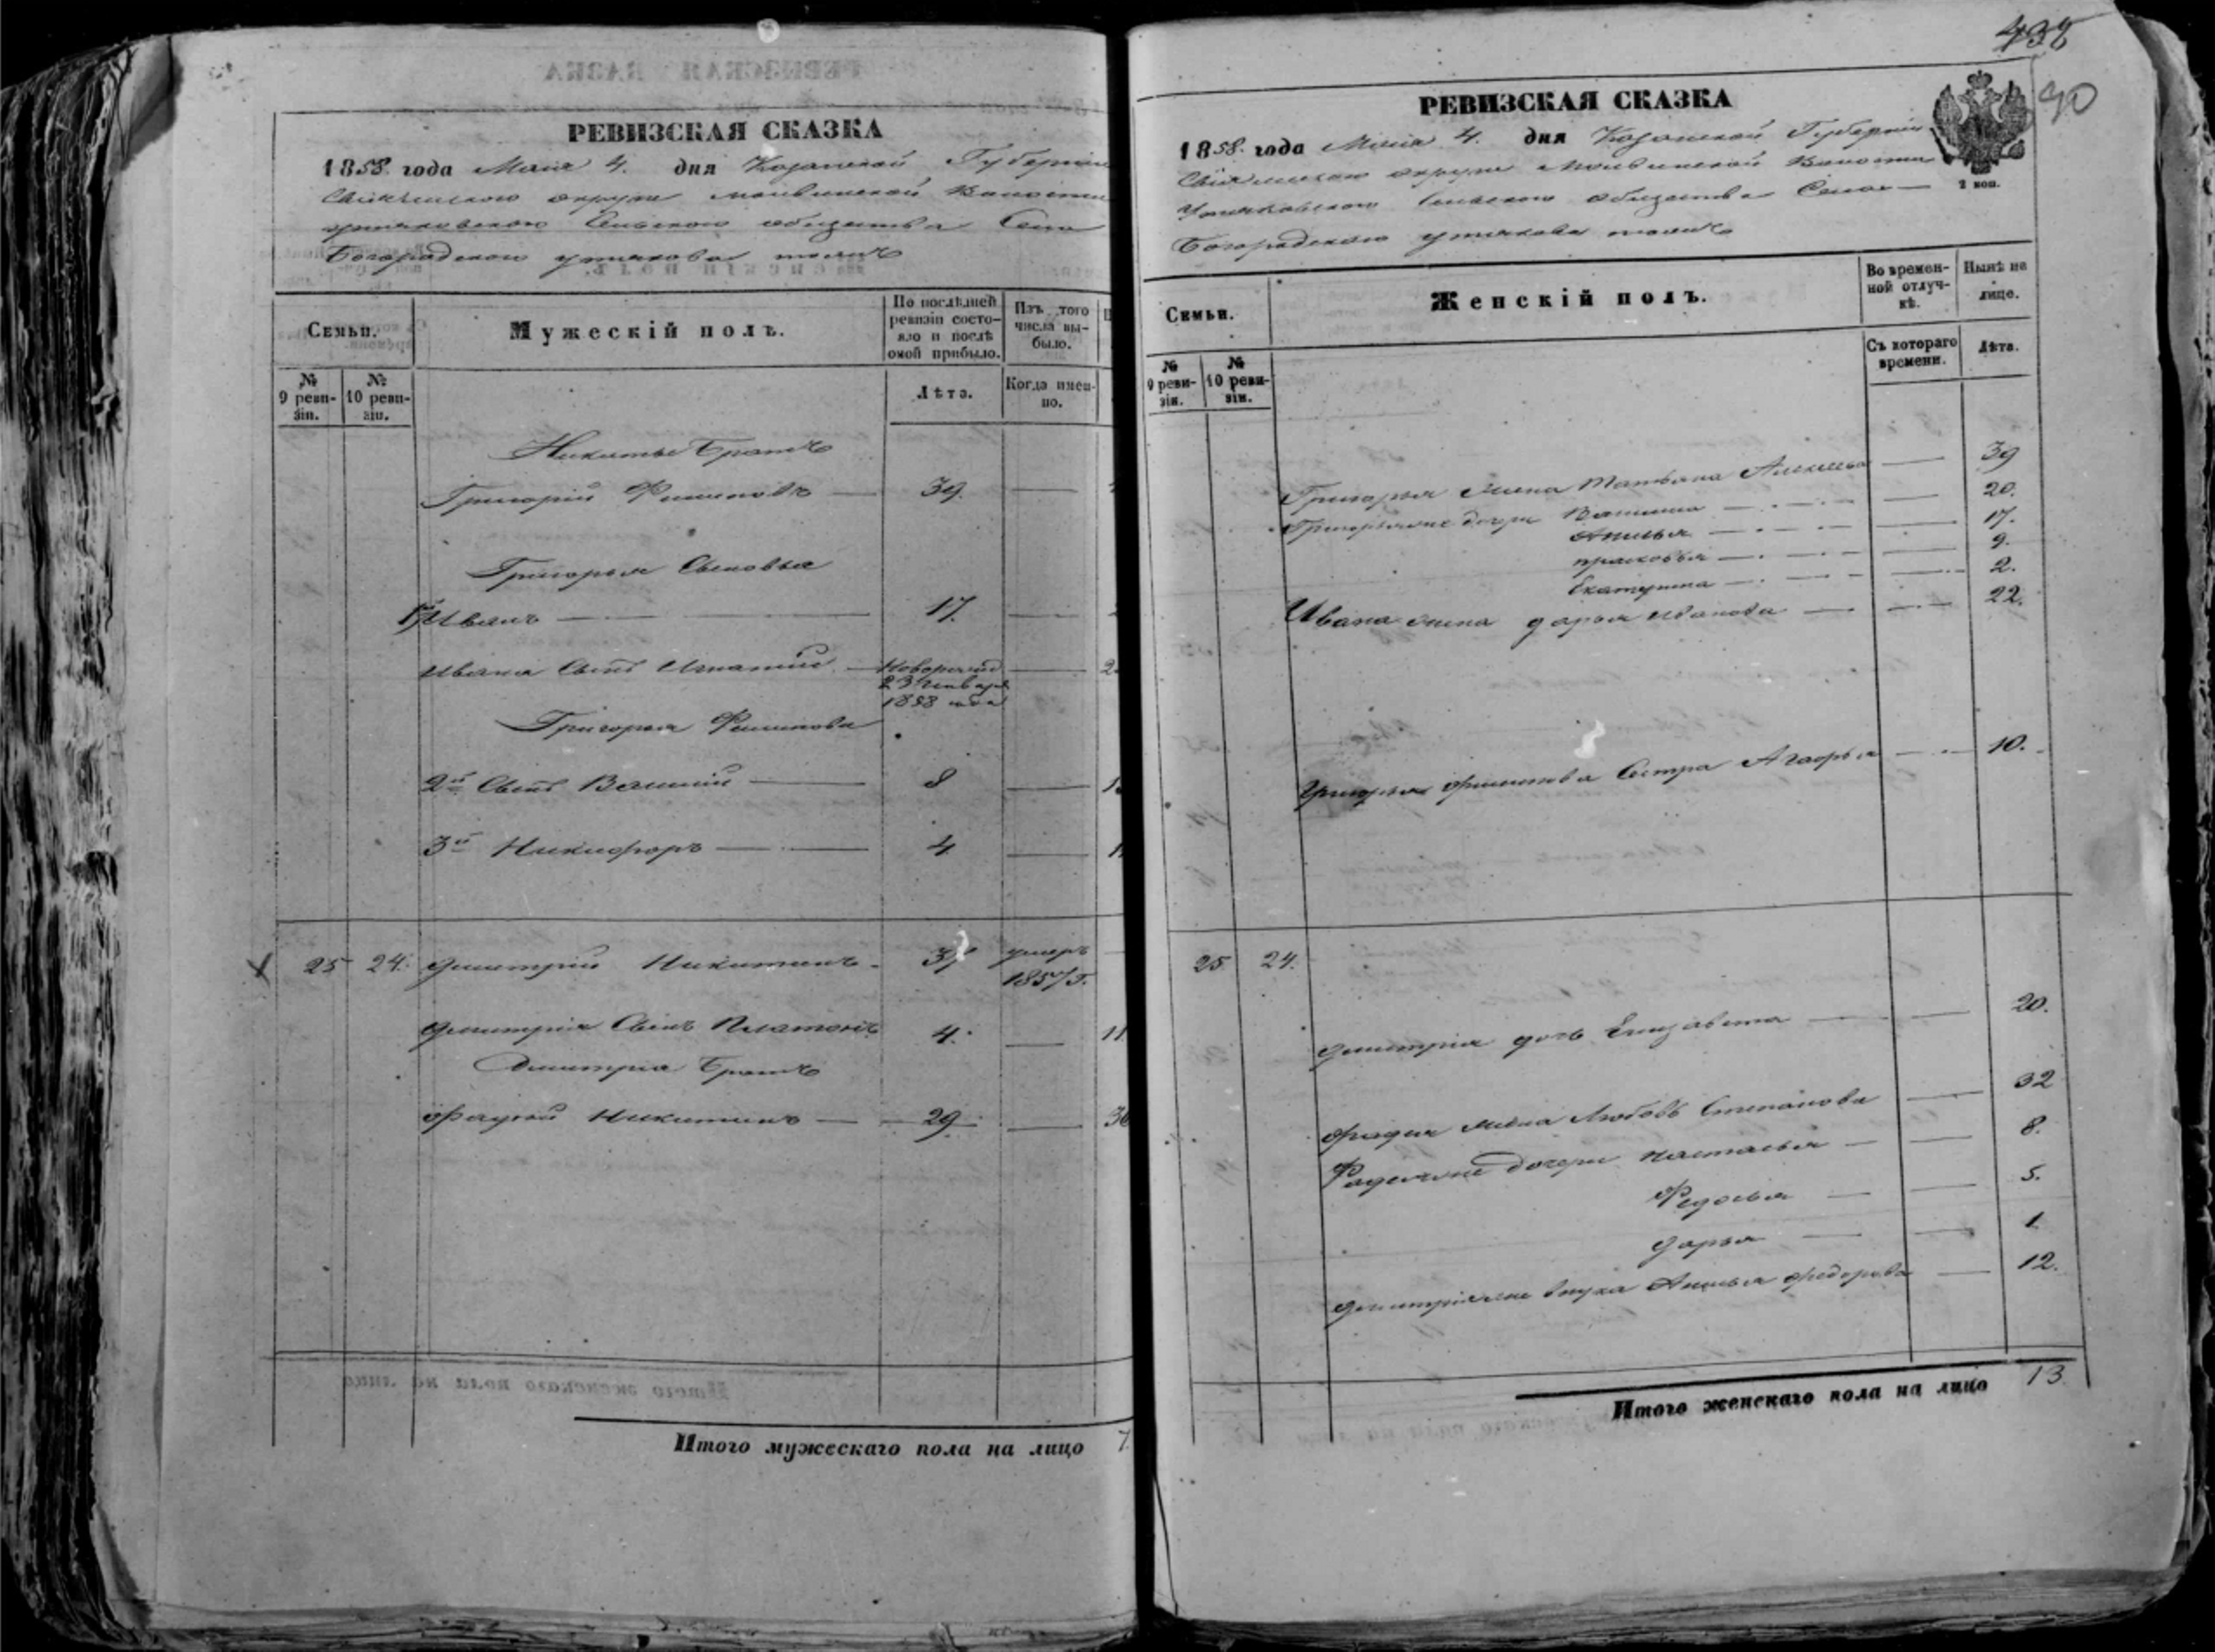 РЕВИЗСКАЯ СКАЗКА
1858 года Маія 4. дня Казанской Губерніи
округи Волости
Сельскаго общества Села
Богородскаго тожъ
Семьи.
Мужескій полъ.
По послѣдней ревизіи состояло и послѣ оной прибыло.
Изъ того числа выбыло.
№ 9 ревизіи.
№ 10 ревизіи.
Лѣта.
Когда именно.
Никиты Братъ
Григорій Филиповъ 39.
Григорья Сыновья
1й Иванъ 17.
Ивана Сынъ Игнатій Новорожд
23 генваря
1858 года
Григорья Филипова
2й Сынъ Василій 8
3й Никифоръ 4
25 24. Дмитрій Никитинъ умеръ
1857 г.
Дмитрія Сынъ Платонъ 4. 11
Дмитрія Братъ
Фадей Никитинъ 29.
Итого мужескаго пола на лицо 7
438
90
РЕВИЗСКАЯ СКАЗКА
1858 года Маія 4. дня Казанской Губерніи
округи Волости
Сельскаго общества Села
Богородскаго тожъ
2 коп.
Семьи.
Женскій полъ.
Во временной отлучкѣ.
Нынѣ на лице.
№ 9 ревизіи.
№ 10 ревизіи.
Съ котораго времени.
Лѣта.
Григорья жена Татьяна Алексѣева 39
Григорьевы дочери 20.
17.
Прасковья 9.
Екатерина 2.
Ивана жена Дарья Иванова 22.
Григорья Филипова Сестра 10.
25 24.
Дмитрія дочь Елизавета 20.
Фадея жена Любовь Степанова 32
дочери Настасья 8.
Федосья 5.
Дарья 1
внука Федорова 12.
Итого женскаго пола на лицо 13